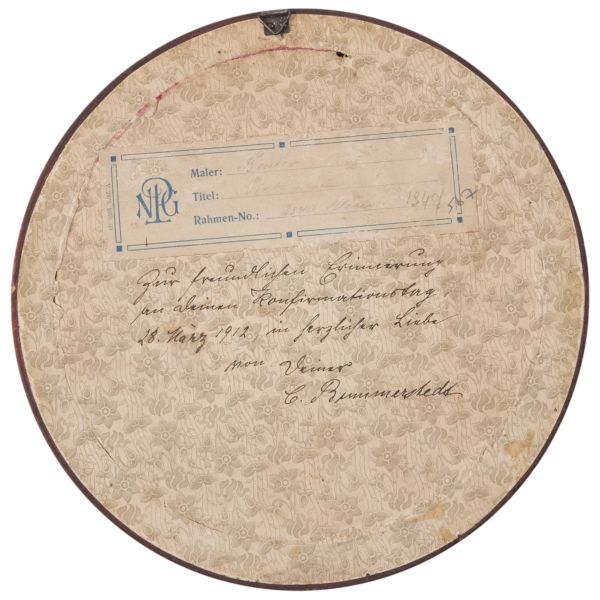 NPG
Maler:
Titel:
Rahmen-No.: 1849 567
Zur freundlichen Erinnerung
an Deinen Konfirmationstag
28. März 1912, in herzlicher Liebe
von Deiner
C. Bummerstedt